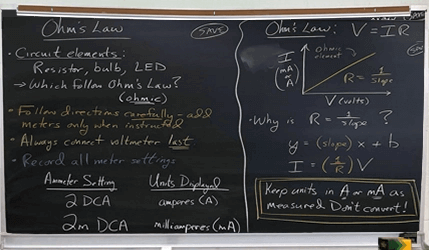 Ohm's Law
SAVE
• Circuit elements:
Resistor, bulb, LED
→ Which follow Ohm's Law?
(ohmic)
• Follow directions carefully - add
meters only when instructed
• Always connect voltmeter last
• Record all meter settings
Ammeter Setting Units Displayed
2 DCA amperes (A)
2m DCA milliamperes (mA)
Ohm's Law: V = IR
I
(mA
or
A)
Ohmic
element
R = 1/slope
V (volts)
• Why is R = 1/slope ?
y = (slope) x + b
I = (1/R) V
Keep units in A or mA as
measured Don't convert!